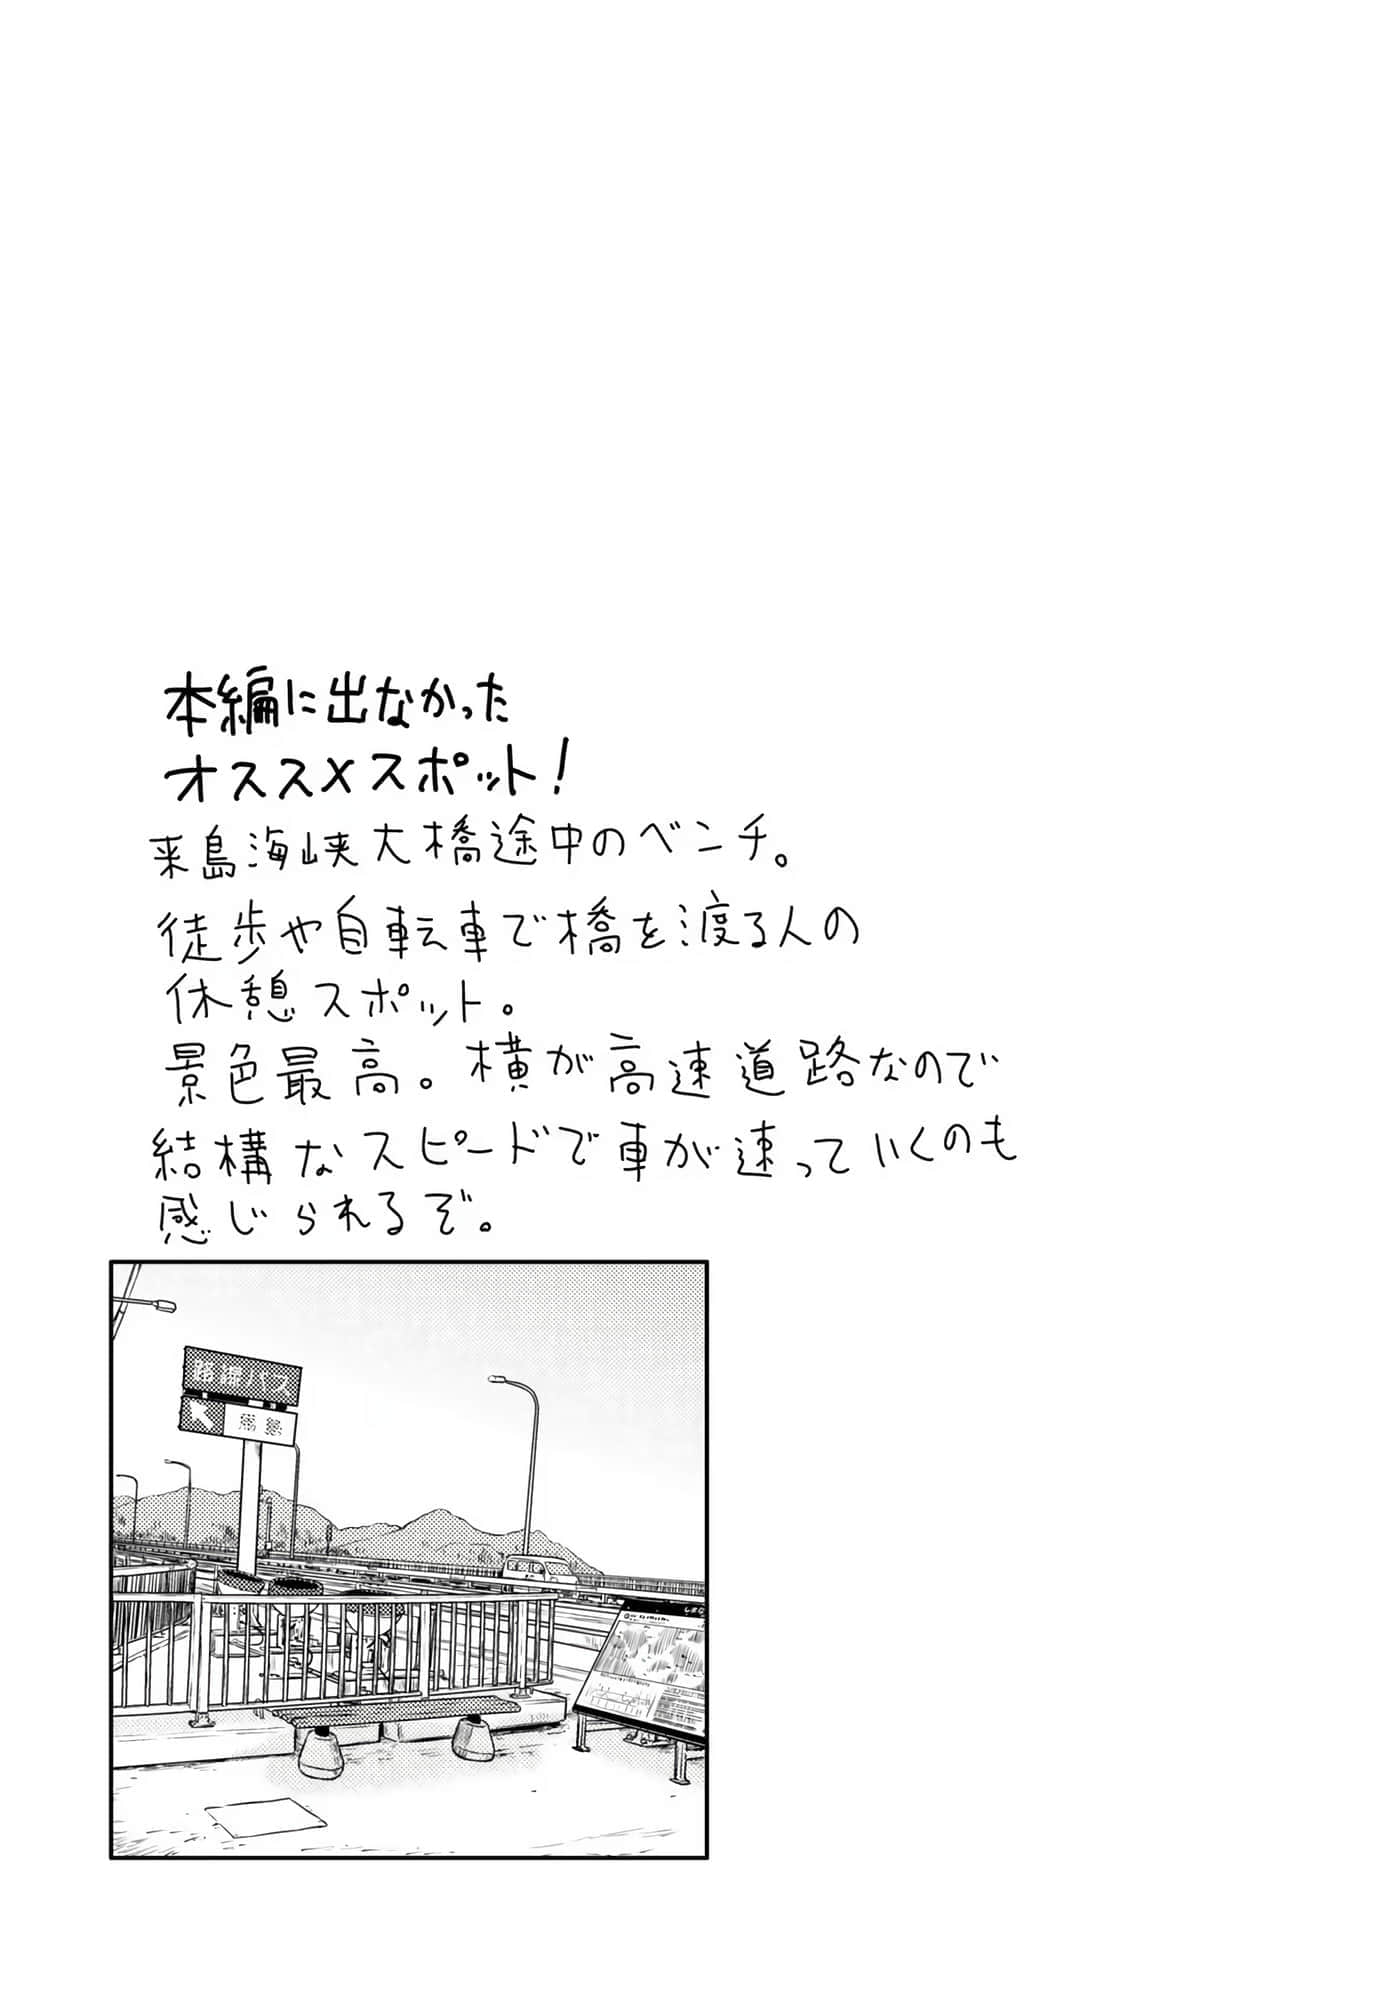 本編に出なかった
オススメスポット！
来島海峡大橋途中のベンチ。
徒歩や自転車で橋を渡る人の
休憩スポット。
景色最高。横が高速道路なので
結構なスピードで車が速っていくのも
感じられるぞ。
路線バス
馬島